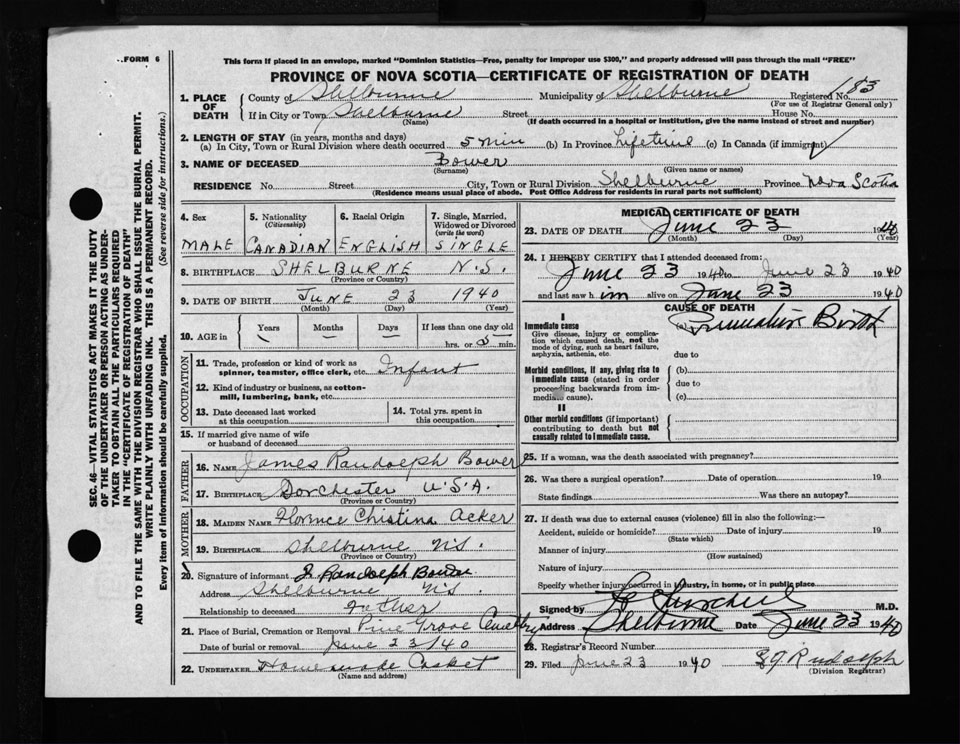 FORM 6
This form if placed in an envelope, marked "Dominion Statistics—Free, penalty for improper use $300," and properly addressed will pass through the mail "FREE"
PROVINCE OF NOVA SCOTIA—CERTIFICATE OF REGISTRATION OF DEATH
1. PLACE OF DEATH County of Shelburne Municipality of Shelburne Registered No. 183
(For use of Registrar General only)
If in City or Town Shelburne Street House No.
(Name) (If death occurred in a hospital or institution, give the name instead of street and number)
2. LENGTH OF STAY (in years, months and days)
(a) In City, Town or Rural Division where death occurred 5 min (b) In Province Lifetime (c) In Canada (if immigrant)
3. NAME OF DECEASED Bower
(Surname) (Given name or names)
RESIDENCE No. Street City, Town or Rural Division Shelburne Province Nova Scotia
(Residence means usual place of abode. Post Office Address for residents in rural parts not sufficient)
SEC. 46—VITAL STATISTICS ACT MAKES IT THE DUTY
OF THE UNDERTAKER OR PERSON ACTING AS UNDER-
TAKER TO OBTAIN ALL THE PARTICULARS REQUIRED
IN THE "CERTIFICATE OF REGISTRATION OF DEATH"
AND TO FILE THE SAME WITH THE DIVISION REGISTRAR WHO SHALL ISSUE THE BURIAL PERMIT.
WRITE PLAINLY WITH UNFADING INK. THIS IS A PERMANENT RECORD.
Every item of information should be carefully supplied. (See reverse side for instructions.)
4. Sex 5. Nationality (Citizenship) 6. Racial Origin 7. Single, Married, Widowed or Divorced (write the word)
MALE CANADIAN ENGLISH SINGLE
8. BIRTHPLACE SHELBURNE N.S.
(Province or Country)
9. DATE OF BIRTH JUNE 23 1940
(Month) (Day) (Year)
10. AGE in Years Months Days If less than one day old
hrs. or 5 min.
OCCUPATION
11. Trade, profession or kind of work as
spinner, teamster, office clerk, etc. Infant
12. Kind of industry or business, as cotton-
mill, lumbering, bank, etc.
13. Date deceased last worked
at this occupation
14. Total yrs. spent in
this occupation
15. If married give name of wife
or husband of deceased
FATHER
16. NAME James Randolph Bower
17. BIRTHPLACE Dorchester U.S.A.
(Province or Country)
MOTHER
18. MAIDEN NAME Florence Christina Acker
19. BIRTHPLACE Shelburne N.S.
(Province or Country)
20. Signature of informant J Randolph Bower
Address Shelburne N.S.
Relationship to deceased Father
21. Place of Burial, Cremation or Removal Pine Grove Cemetery
Date of burial or removal June 23/40
22. UNDERTAKER Home made Casket
(Name and address)
MEDICAL CERTIFICATE OF DEATH
23. DATE OF DEATH June 23 1940
(Month) (Day) (Year)
24. I HEREBY CERTIFY that I attended deceased from:
June 23 1940 to June 23 1940
and last saw h im alive on June 23 1940
CAUSE OF DEATH
I
Immediate cause (a) Premature Birth
Give disease, injury or complica-
tion which caused death, not the
mode of dying, such as heart failure,
asphyxia, asthenia, etc. due to
Morbid conditions, if any, giving rise to (b)
immediate cause (stated in order due to
proceeding backwards from im-
mediate cause). (c)
II
Other morbid conditions (if important)
contributing to death but not
causally related to immediate cause.
25. If a woman, was the death associated with pregnancy?
26. Was there a surgical operation? Date of operation 19
State findings Was there an autopsy?
27. If death was due to external causes (violence) fill in also the following:—
Accident, suicide or homicide? Date of injury 19
(State which)
Manner of injury
(How sustained)
Nature of injury
Specify whether injury occurred in industry, in home, or in public place
Signed by M.D.
Address Shelburne Date June 23 1940
28. Registrar's Record Number
29. Filed June 23 1940 Rudolph
(Division Registrar)